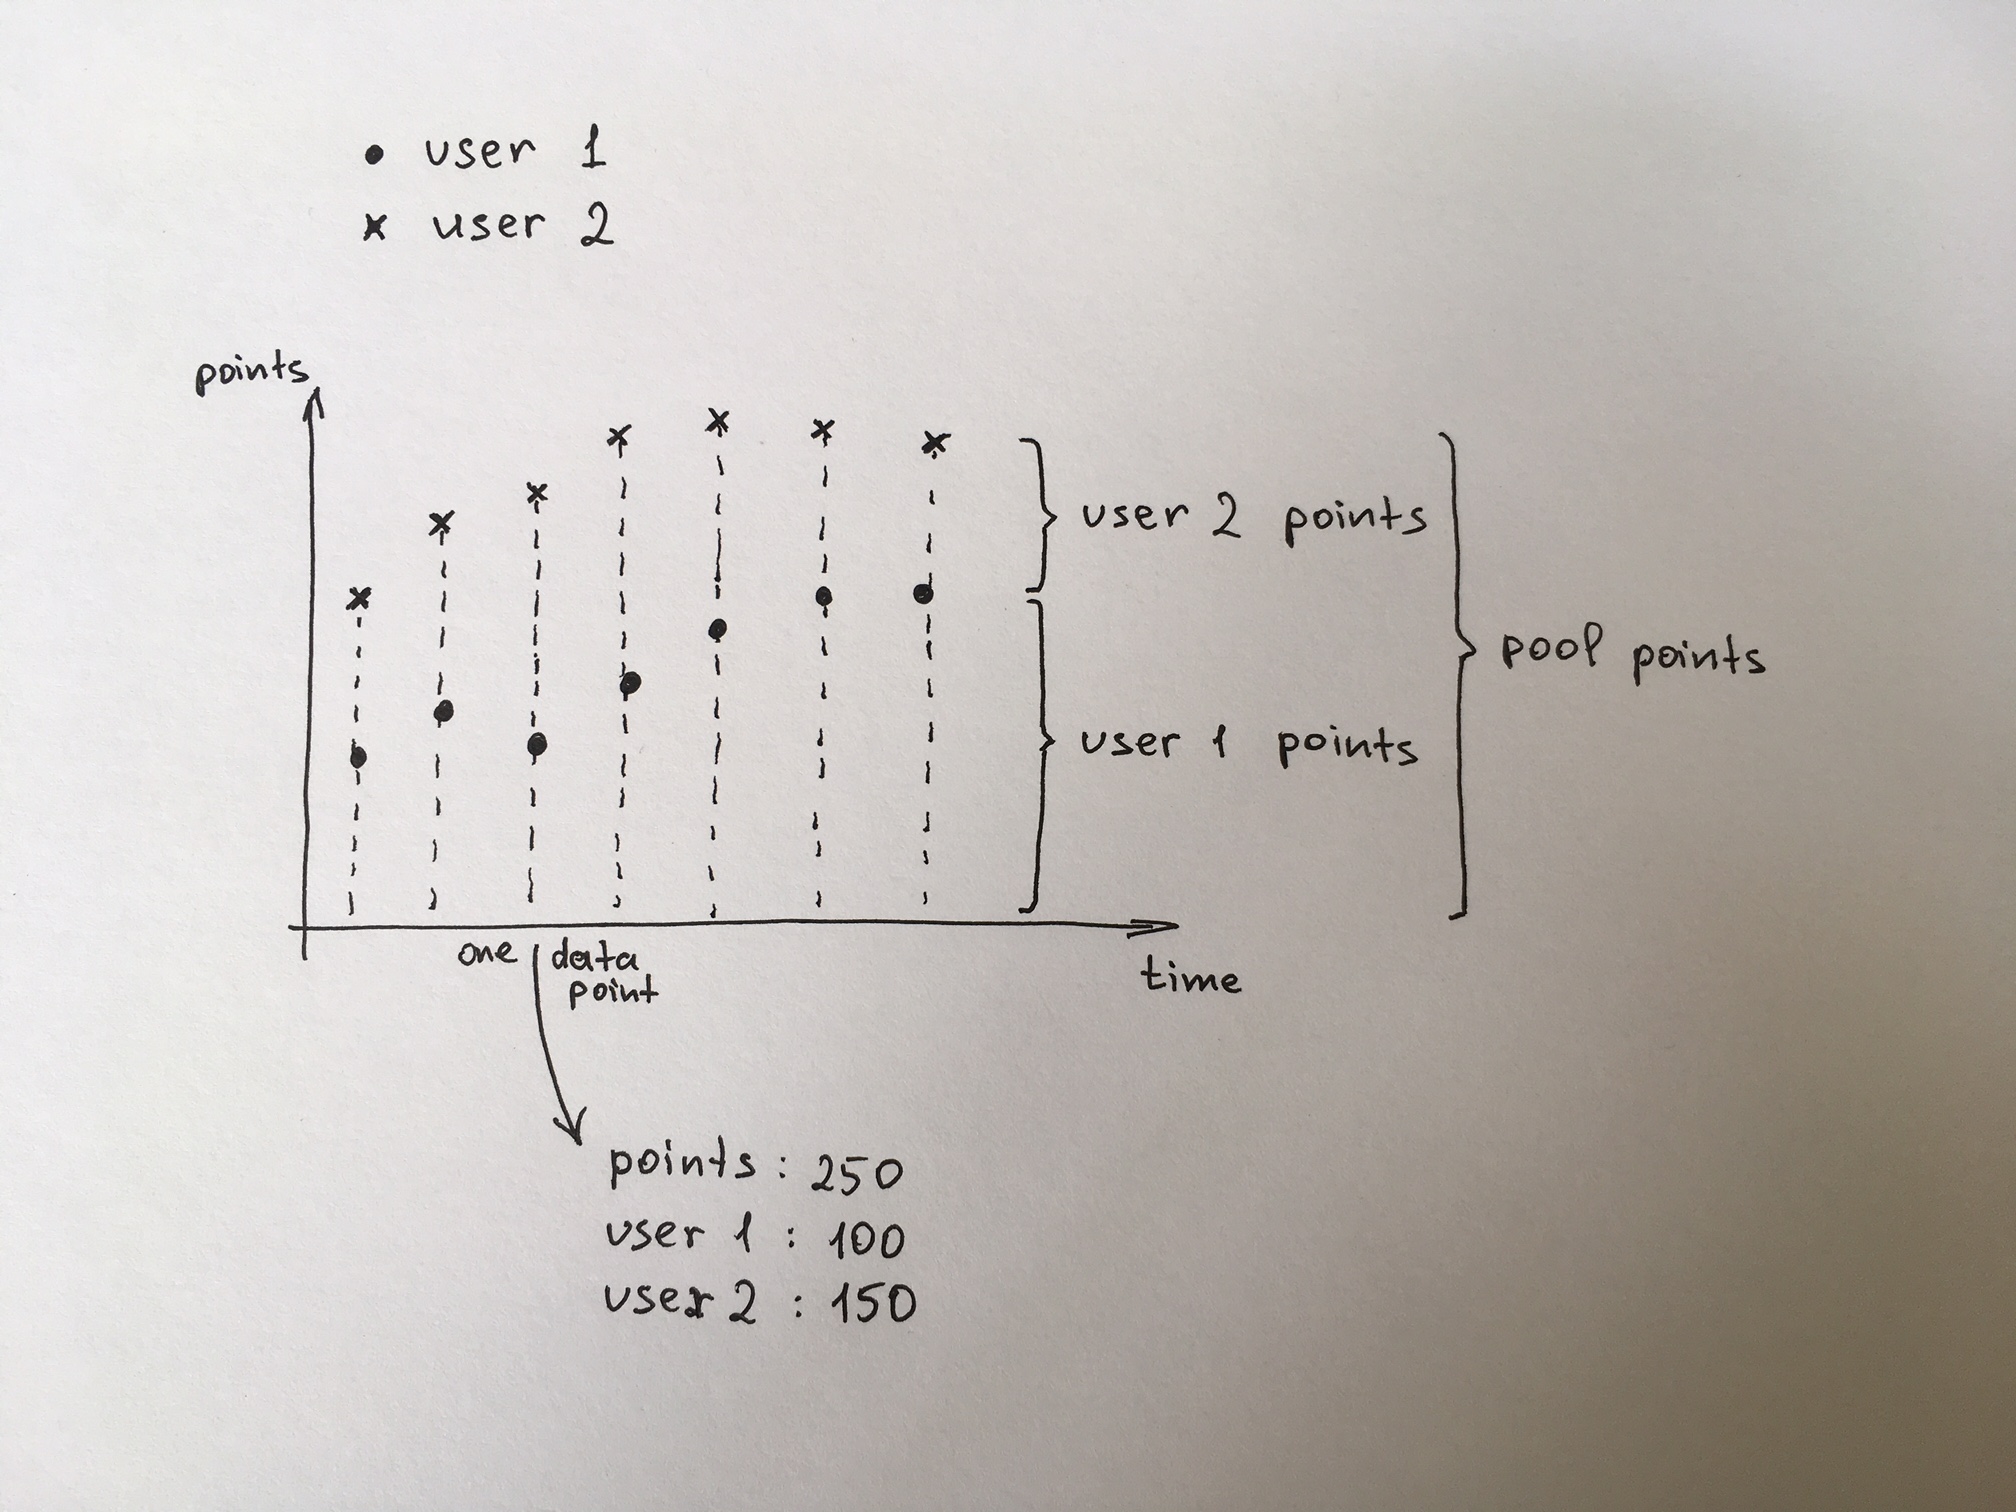 • user 1
x user 2
points
user 2 points
pool points
user 1 points
one data
point
time
points : 250
user 1 : 100
user 2 : 150